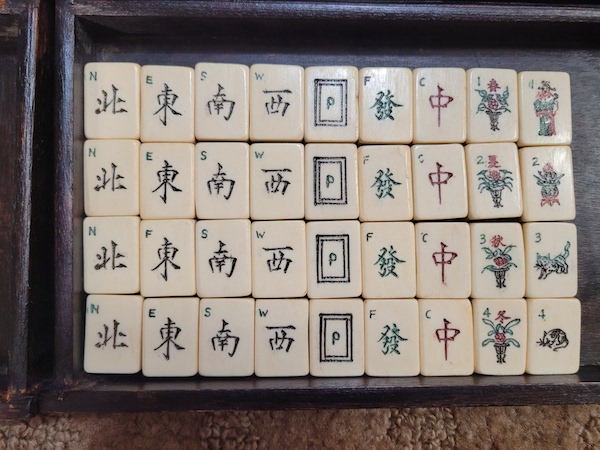 N 北 E 東 S 南 W 西 P F 發 C 中 1 春 1
N 北 E 東 S 南 W 西 P F 發 C 中 2 夏 2
N 北 F 東 S 南 W 西 P F 發 C 中 3 秋 3
N 北 E 東 S 南 W 西 P F 發 C 中 4 冬 4